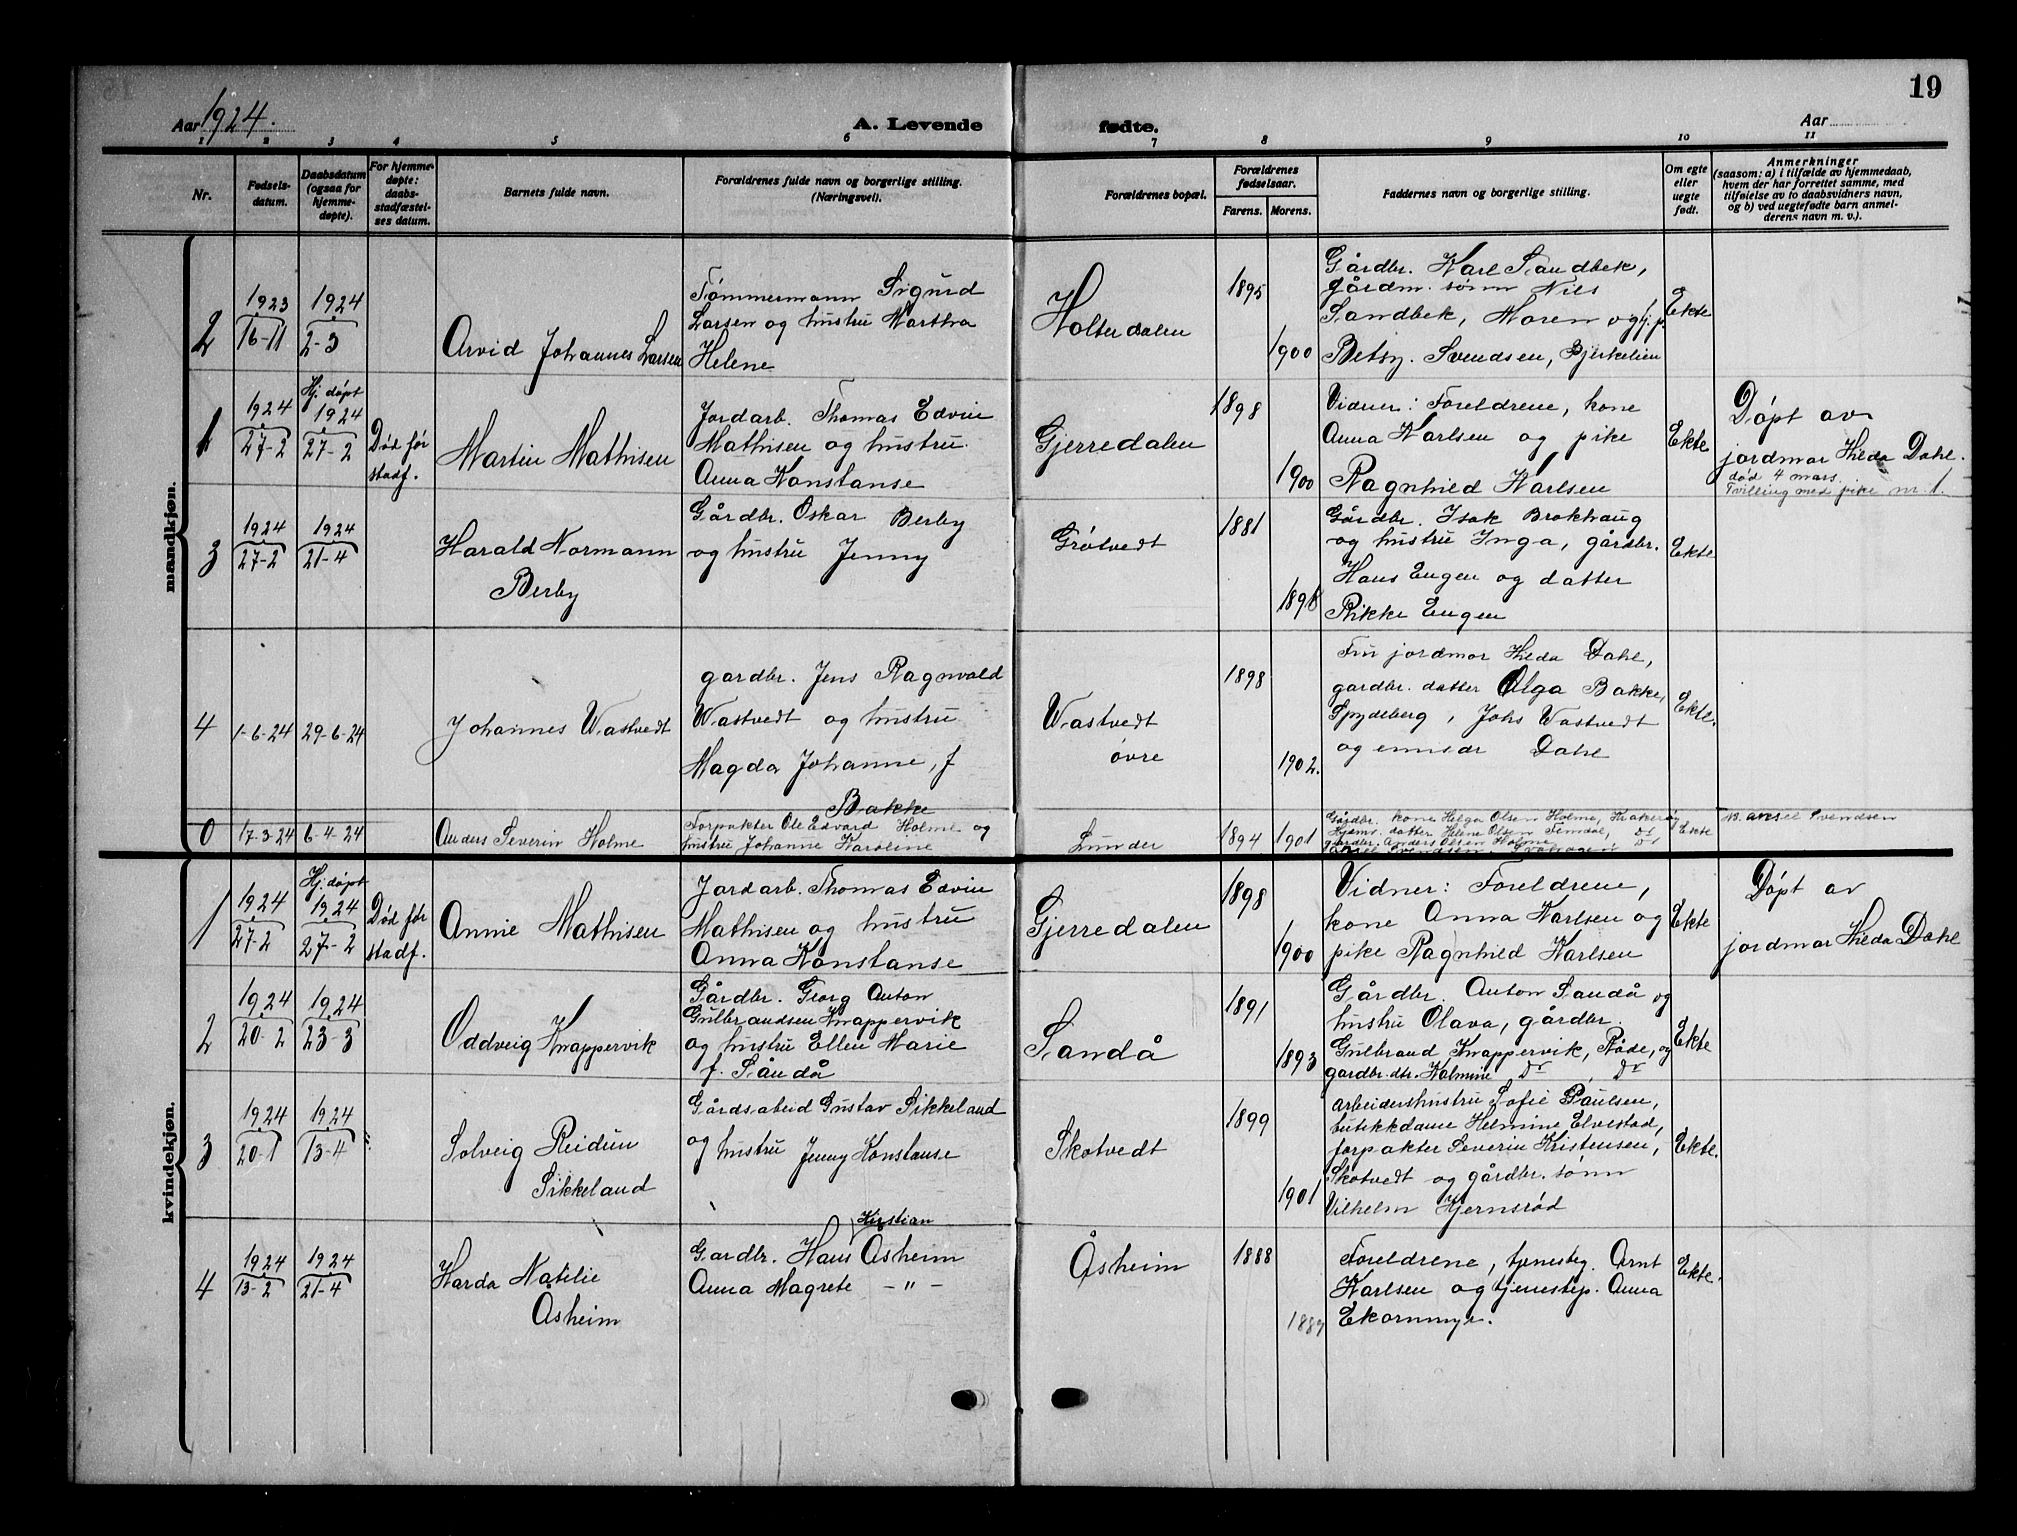 19
Aar 1924.
A. Levende
fødte.
Aar
1 2 3 4 5 6 7 8 9 10 11
Nr.
Fødsels-
datum.
Daabsdatum
(ogsaa for
hjemme-
døpte).
For hjemme-
døpte:
daabs-
stadfæstel-
ses datum.
Barnets fulde navn.
Forældrenes fulde navn og borgerlige stilling.
(Næringsvei).
Forældrenes bopæl.
Forældrenes
fødselsaar.
Farens. Morens.
Faddernes navn og borgerlige stilling.
Om egte
eller
uegte
født.
Anmerkninger
(saasom: a) i tilfælde av hjemmedaab,
hvem der har forrettet samme, med
tilføielse av to daabsvidners navn,
og b) ved uegtefødte barn anmel-
derens navn m. v.).
mandkjøn.
2
1923
16-11
1924
2-3
Arvid Johannes Larsen
Tømmermann Sigurd
Larsen og hustru Martha
Helene
Holterdalen
1895
1900
Gårdbr. Karl Sandbek,
gårdm. sønn Nils
Sandbek, Maren og hj. p.
Betsy. Svendsen, Bjerkelien
Ekte
1
1924
27-2
Hj. døpt
1924
27-2
Død før
stadf.
Martin Mathisen
Jordarb. Thomas Edvin
Mathisen og hustru
Anna Konstanse
Gjerredalen
1898
1900
Vidner: Foreldrene, kone
Anna Karlsen og pike
Ragnhild Karlsen
Ekte
Døpt av
jordmor Hilda Dahl.
død 4 mars.
Tvilling med pike nr. 1.
3
1924
27-2
1924
21-4
Harald Normann
Berby
Gårdbr. Oskar Berby
og hustru Jenny
Grötvedt
1881
1898
Gårdbr. Isak Brokhaug
og hustru Inga, gårdbr.
Hans Engen og datter
Rikke Engen
Ekte
4
1-6-24
29-6-24
Johannes Wastvedt
gardbr. Jens Ragnvald
Wastvedt og hustru
Magda Johanne, f
Bakke
Wastvedt
øvre
1898
1902.
Fru jordmor Hilda Dahl,
gardbr. datter Olga Bakke,
Spydeberg, Johs Wastvedt
og Dahl
Ekte.
0
17-3-24
6-4-24
Anders Severin Holme
Forpakter Ole Edvard Holme og
hustru Johanne Karoline
Lunder
1894
1901
Gårdbr. kone Helga Olsen Holme,
Hjems. datter Helene Olsen Temdal, Do
gårdbr. Anders Olsen Holme Do
Ekte
Svendsen
kvindekjøn.
1
1924
27-2
Hj. døpt
1924
27-2
Død før
stadf.
Annie Mathisen
Jordarb. Thomas Edvin
Mathisen og hustru
Anna Konstanse
Gjerredalen
1898
1900
Vidner: Foreldrene,
kone Anna Karlsen og
pike Ragnhild Karlsen
Ekte
Døpt av
jordmor Hilda Dahl
2
1924
20-2
1924
23-3
Oddveig Knappervik
Gårdbr. Georg Anton
Gulbrandsen Knappervik
og hustru Ellen Marie
f. Sandå
Sandå
1891
1893
Gårdbr. Anton Sandå og
hustru Olava, gårdbr.
Gulbrand Knappervik, Råde, og
gardbr. dtr. Kalmine Do, Do
Ekte
3
1924
20-1
1924
13-4
Solveig Reidun
Sikkeland
Gårdsarbeid Gustav Sikkeland
og hustru Jenny Konstanse
Skotvedt
1899
1901
Arbeiderhustru Sofie Paulsen,
butikkdame Helmine Elvestad,
forpakter Severin Kristensen,
Skotvedt og gårdbr. sønn
Vilhelm Hjernsrød
Ekte.
4
1924
13-2
1924
21-4
Harda Natilie
Åsheim
Kristian
Gardbr. Hans Åsheim
Anna Magrete -"-
Åsheim
1888
1887
Foreldrene, tjenestg. Arnt
Karlsen og tjenestep. Anna
Ekornmyr.
Ekte.